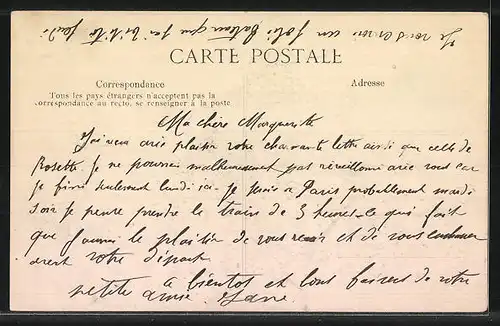 Je vous envoi un joli bateau que j'ai visité jeudi
CARTE POSTALE
Correspondance
Adresse
Tous les pays étrangers n'acceptent pas la
correspondance au recto, se renseigner à la poste
Ma chère Marguerite
J'ai reçu avec plaisir votre charmante lettre ainsi que celle de
Rosette Je ne pourrai malheureusement pas réveillonner avec vous car
je finis seulement lundi ici je serais a Paris probablement mardi
soir je pense prendre le train de 3 heures ce qui fait
que j'aurai le plaisir de vous revoir et de vous embrasser
avant votre départ
a bientot et bons baisers de votre
petite amie Jane